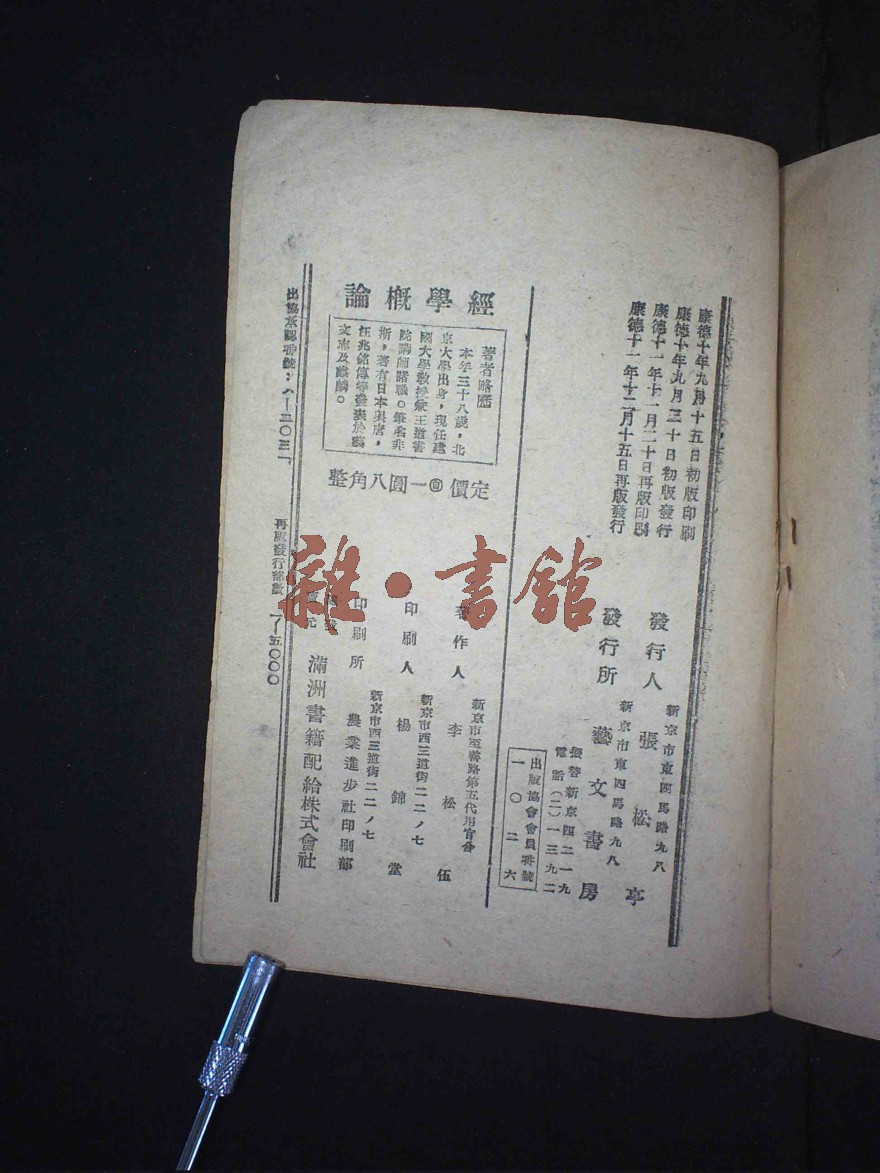 康德十年九月十五日初版印刷
康德十年九月三十日初版發行
康德十一年十一月二十日再版印刷
康德十一年十二月十五日再版發行
新京市東四馬路九八
發行人 張松亭
新京市東四馬路九八
發行所 藝文書房
振替新京四二一九
電話(二)一三九二
出版協會會員番號
一〇二六
經學概論
著者略歷
本年三十八歲,北
京大學出身,現任建
國大學教授兼王道書
院講師諸職。筆名非
斯,著有日本與唐,
汪兆銘傳等發表於藝
文志及麒麟。
定價一圓八角整
新京市至善路第五代用官舍
著作人 李松伍
新京市西三道街二二ノ七
印刷人 楊錦堂
新京市西三道街二二ノ七
印刷所 農業進步社印刷部
滿洲書籍配給株式會社
出協承認番號:八—二〇三
再版發行部數 一—五〇〇〇
雜·書館